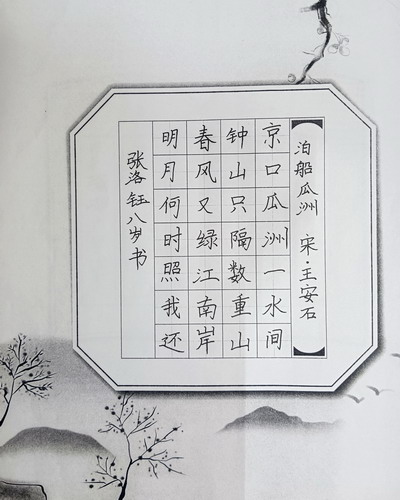 泊船瓜洲 宋·王安石
京口瓜洲一水间
钟山只隔数重山
春风又绿江南岸
明月何时照我还
张洛钰八岁书